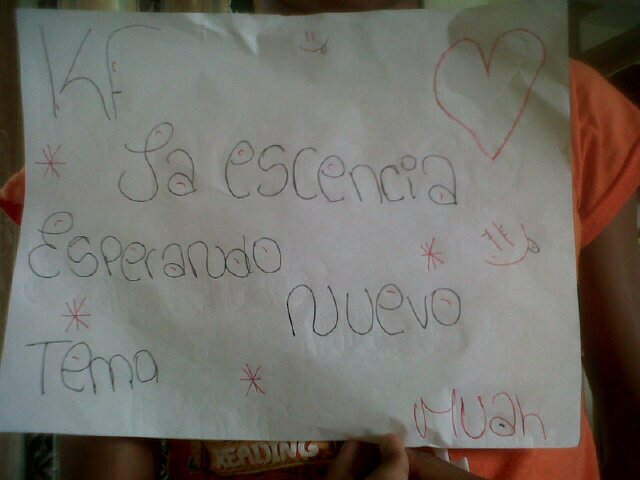 KF
La escencia
Esperando
Nuevo
Tema
Muah
READING